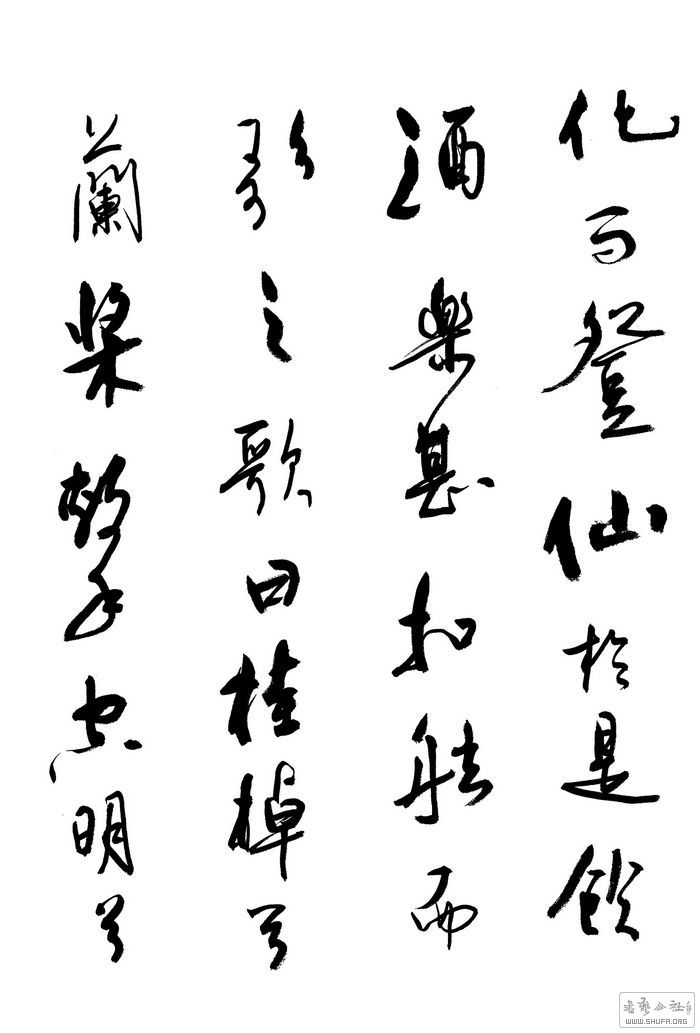 化而登仙於是飲
酒樂甚扣舷而
歌之歌曰桂棹兮
蘭槳擊空明兮
WWW.SHUFA.ORG